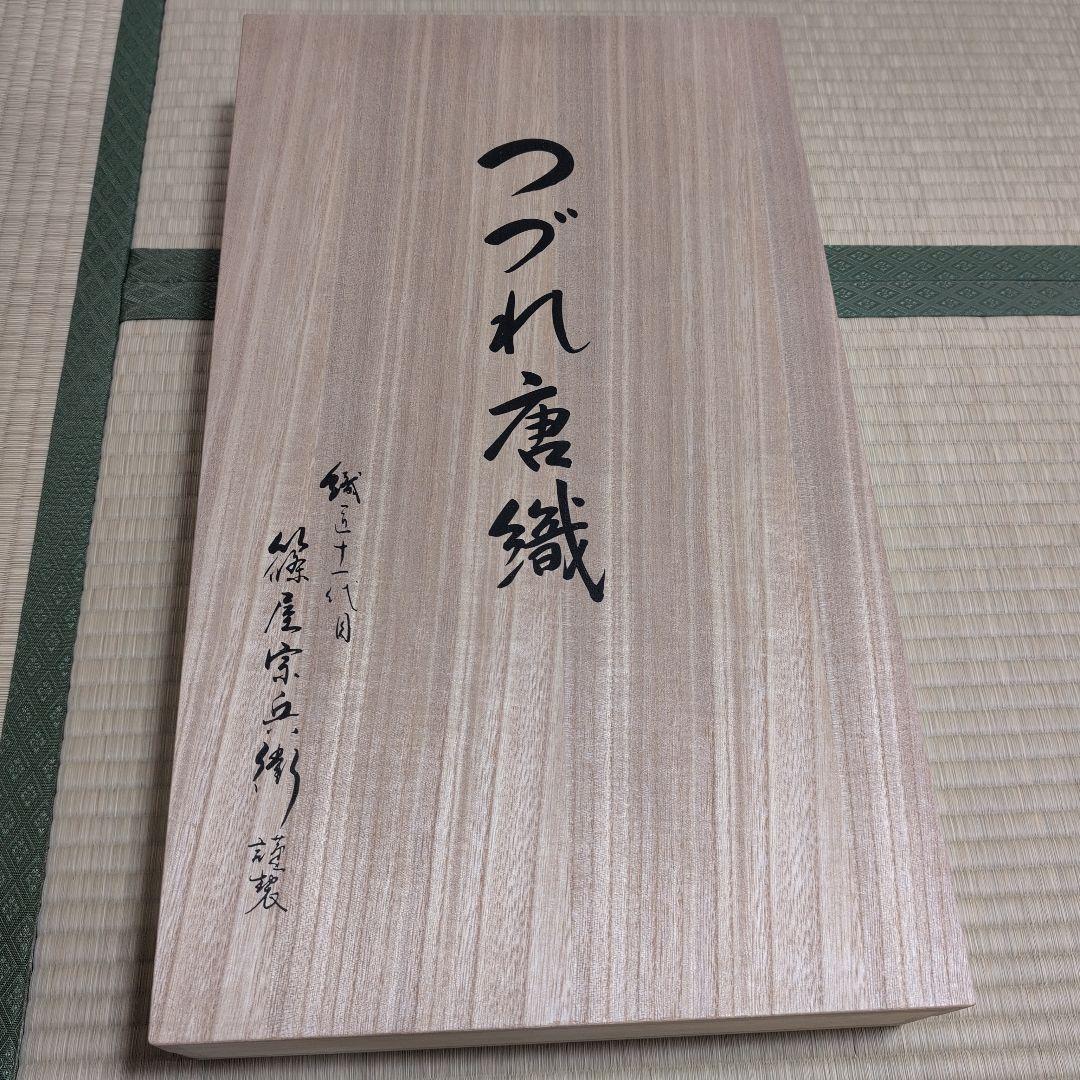 つづれ唐織
織匠十一代目
篠屋宗兵衛
謹製